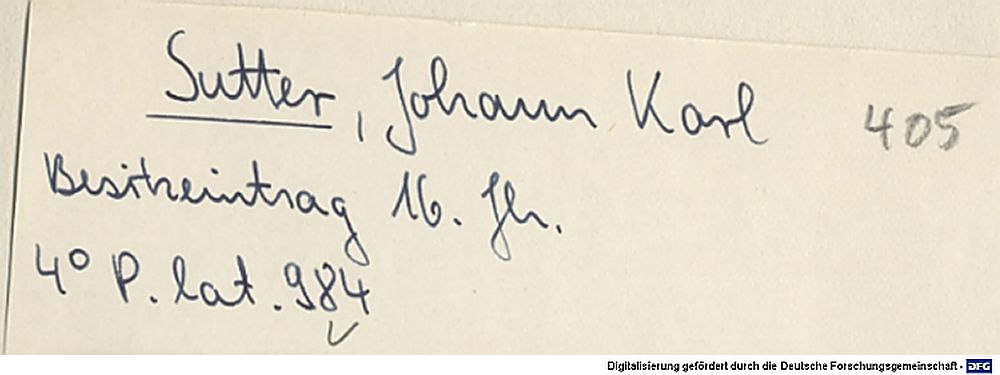 Sutter, Johann Karl 405
Besitzeintrag 16. Jh.
4° P. lat. 984
Digitalisierung gefördert durch die Deutsche Forschungsgemeinschaft - DFG